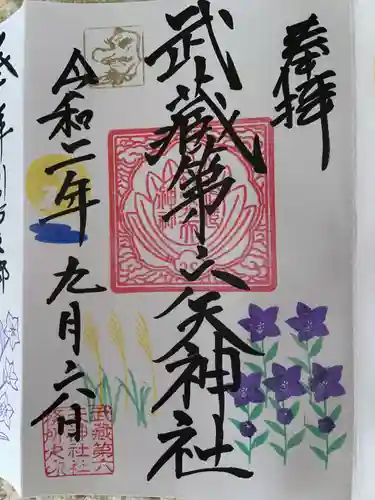 奉拝
武蔵第六天神社
令和二年九月六日
武蔵第六
天神社社